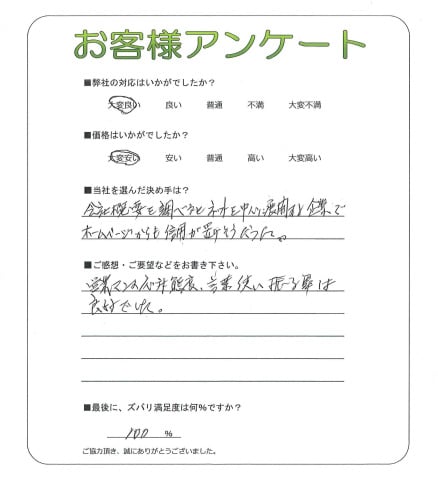 お客様アンケート
■弊社の対応はいかがでしたか？
大変良い 良い 普通 不満 大変不満
■価格はいかがでしたか？
大変安い 安い 普通 高い 大変高い
■当社を選んだ決め手は？
会社概要を調べるとネットを中心に展開する企業で
ホームページからも信用が置けそうだった。
■ご感想・ご要望などをお書き下さい。
営業マンの 態度、言葉使い 振る舞は
良好でした。
■最後に、ズバリ満足度は何％ですか？
100 ％
ご協力頂き、誠にありがとうございました。